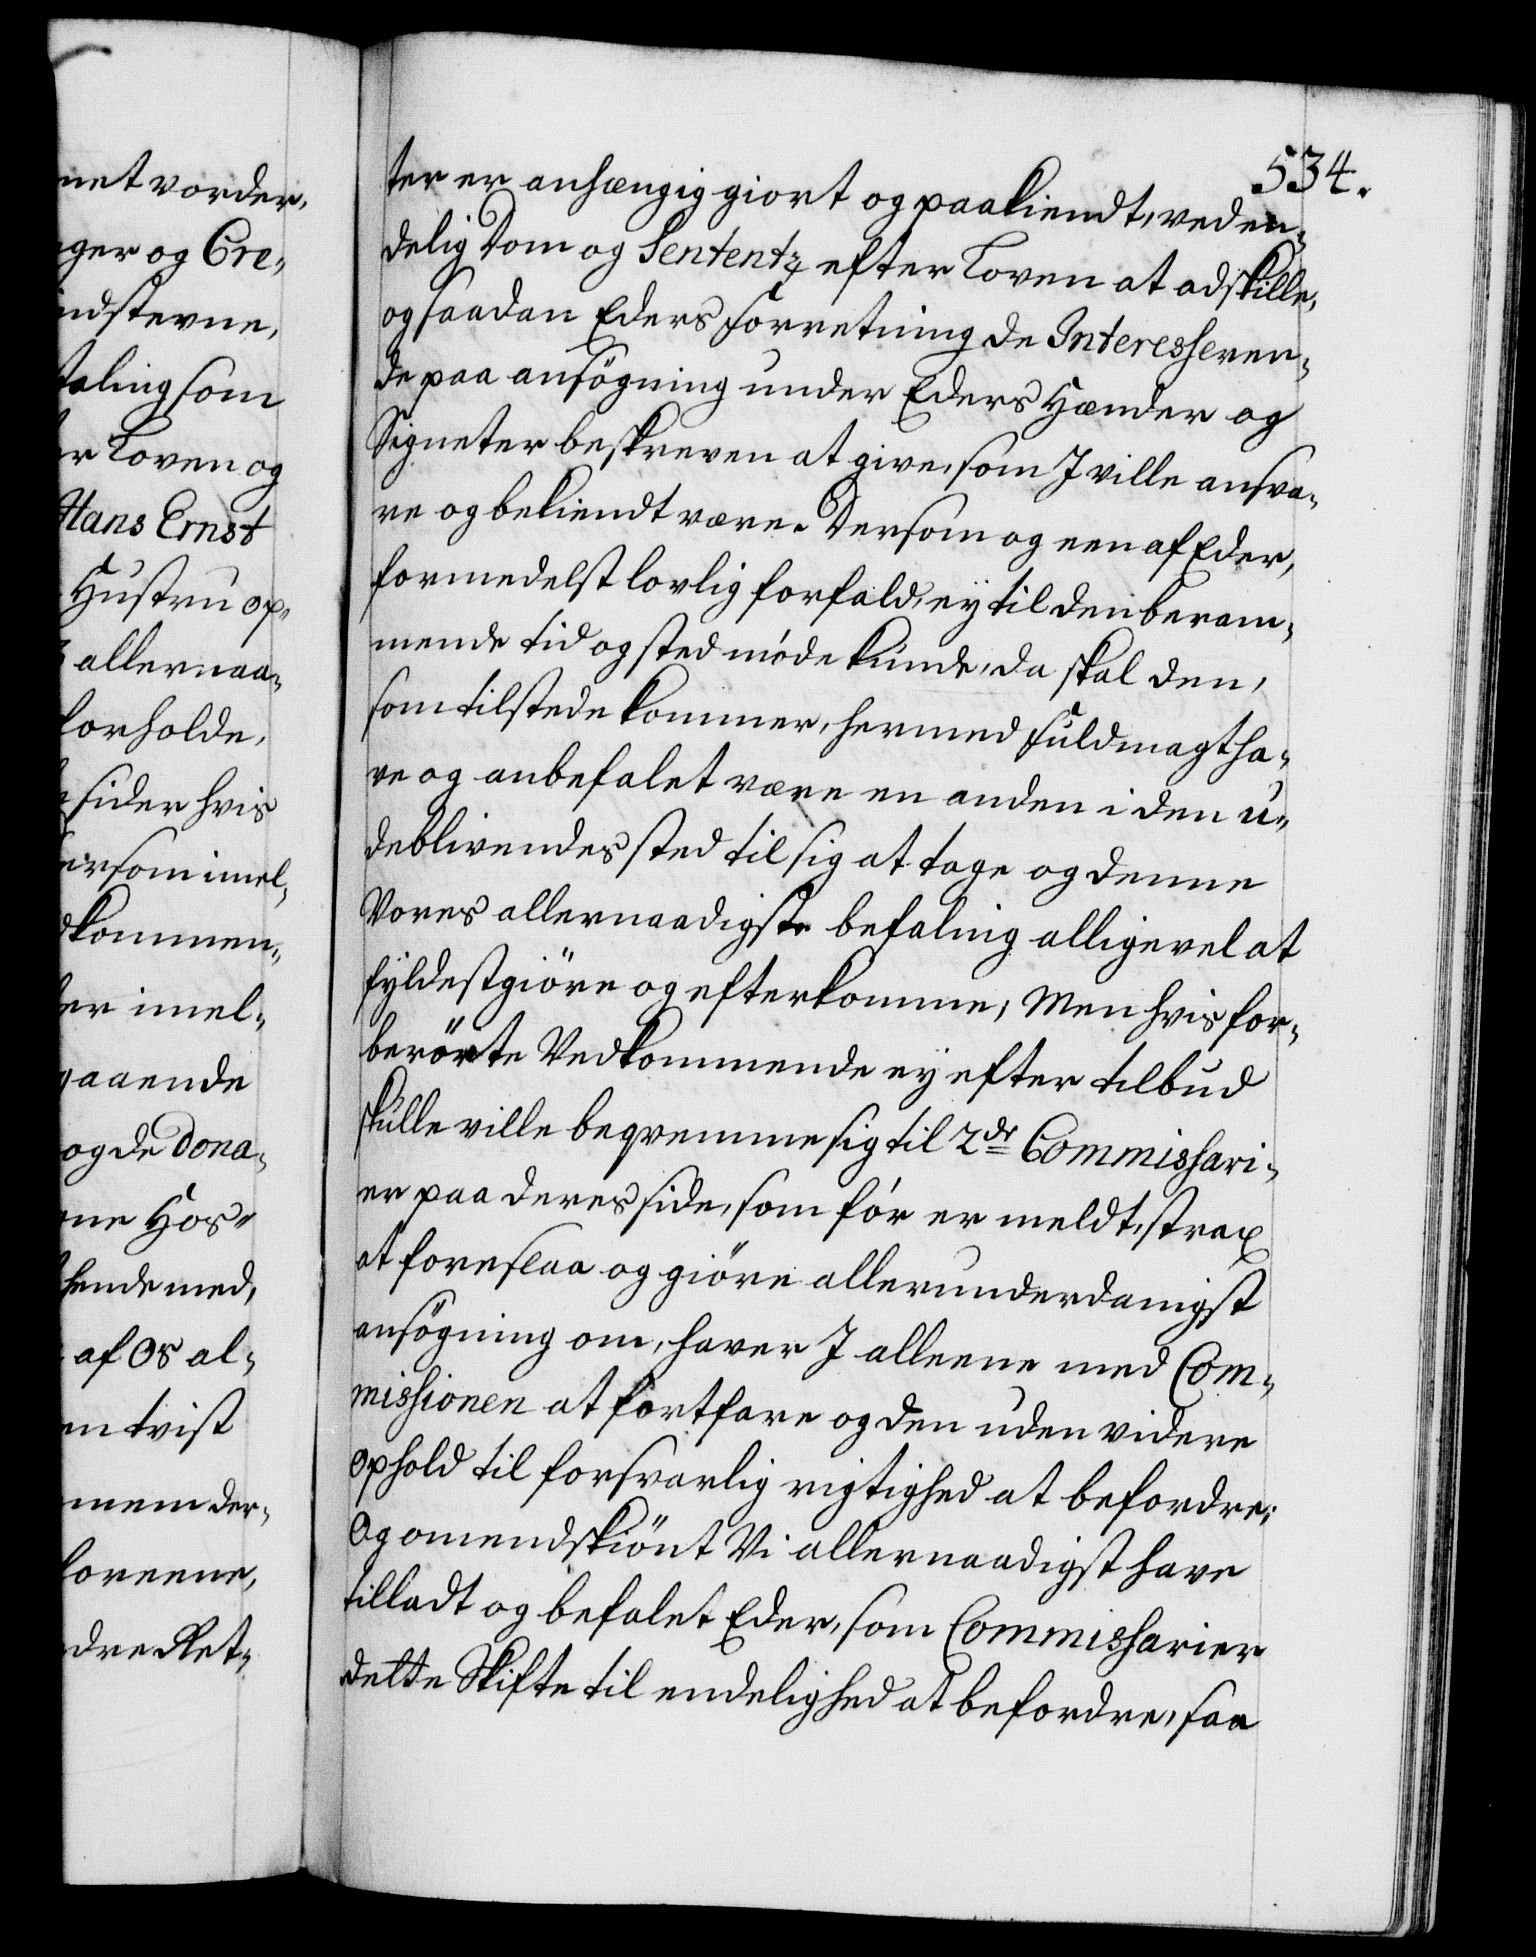 net vorder,
ger og Cre-
indstevne,
taling som
er Loven og
Hans Ernst
Hustru op-
allernaa-
forholde,
sider hvis
ersom imel-
dkommen-
er imel-
gaaende
og de Dona-
ne Hos-
hende med,
af Os al-
en tvist
mem der-
foreene,
dre Ret-
534.
ter er anhængig giort og paakiendt, ved en-
delig Dom og Sententz efter Loven at adskille,
og saadan Eders Forretning de Interesheren-
de paa ansögning under Eders Hænder og
Signeter beskreven at give, som I ville ansva-
re og bekiendt være. Dersom og een af Eder,
formedelst lovlig forfald, ey til den beram-
mende tid og sted møde kunde, da skal den,
som tilstede kommer, hermed fuldmagt ha-
ve og anbefalet være en anden i den u-
deblivendes sted til sig at tage og denne
Vores allernaadigste befaling alligevel at
fyldestgiöre og efterkomme; Men hvis for-
berörte Vedkommende ey efter tilbud
skulle ville beqvemme sig til 2de Commishari-
er paa deres side, som för er meldt, strax
at foreslaa og giöre allerunderdanigst
ansögning om, haver I alleene med Com-
mishionen at fortfare og den uden videre
Ophold til forsvarlig rigtighed at befordre;
Og omendskiönt Vi allernaadigst have
tilladt og befalet Eder, som Commisharier
dette Skifte til endelighed at befordre, saa